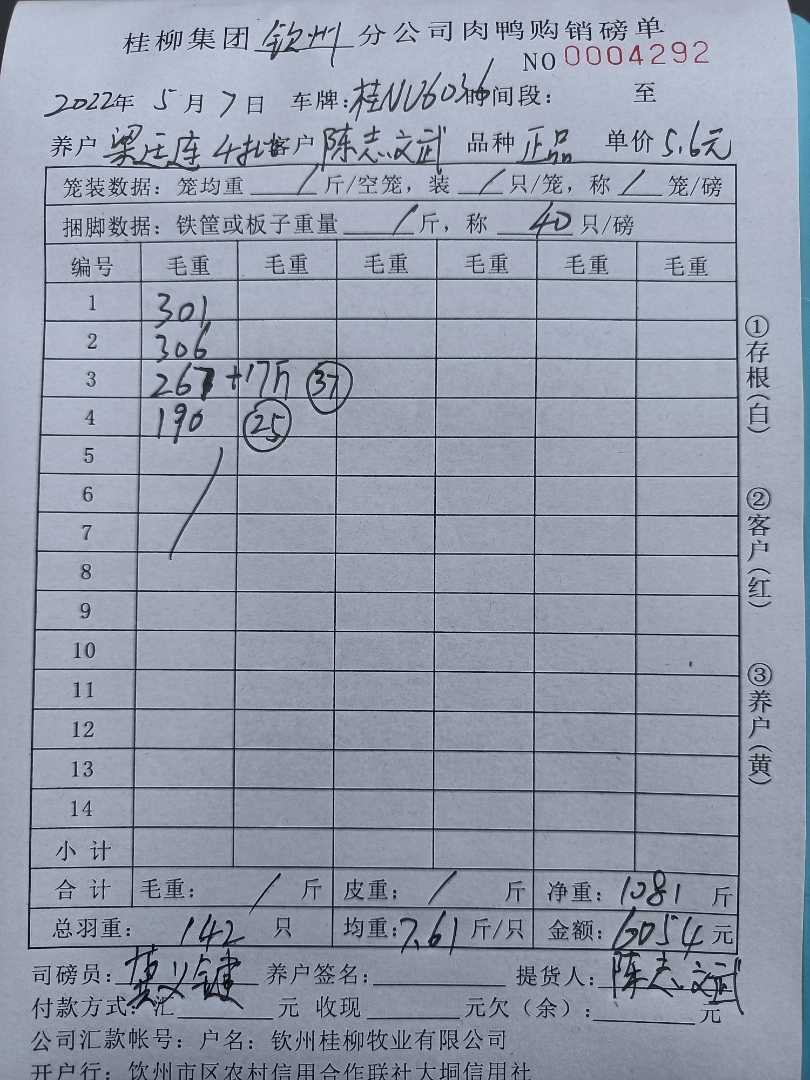 桂柳集团钦州分公司肉鸭购销磅单
NO 0004292
2022年 5月 7日 车牌:桂NU6036 时间段: 至
养户 梁 连 4扎 客户 陈志文武 品种 正品 单价 5.6元
笼装数据:笼均重 / 斤/空笼,装 / 只/笼,称 / 笼/磅
捆脚数据:铁筐或板子重量 / 斤,称 40 只/磅
编号 毛重 毛重 毛重 毛重 毛重 毛重
1 301
2 306
3 267 +17斤 37
4 190 25
5
6
7
8
9
10
11
12
13
14
小计
合计 毛重: / 斤 皮重: / 斤 净重:1081 斤
总羽重: 142 只 均重:7.61 斤/只 金额:6054 元
司磅员: 莫义健 养户签名: 提货人: 陈志文武
付款方式:汇 元 收现 元欠(余): 元
公司汇款帐号:户名:钦州桂柳牧业有限公司
开户行:钦州市区农村信用合作联社大垌信用社
①存根(白)
②客户(红)
③养户(黄)